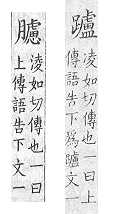 凌如切傳也一曰上
傳語告下爲臚文一
臚
凌如切傳也一曰
上傳語告下文一